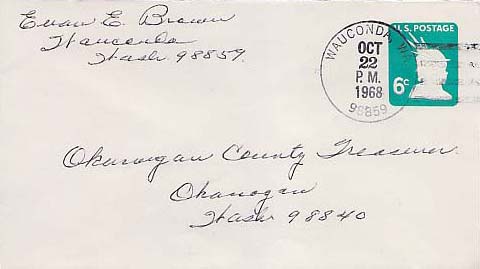 Evan E. Brown
Wauconda
Wash. 98859.
WAUCONDA, WA
OCT
22
P.M.
1968
98859
U.S. POSTAGE
6c
Okanogan County Treasurer
Okanogan
Wash 98840